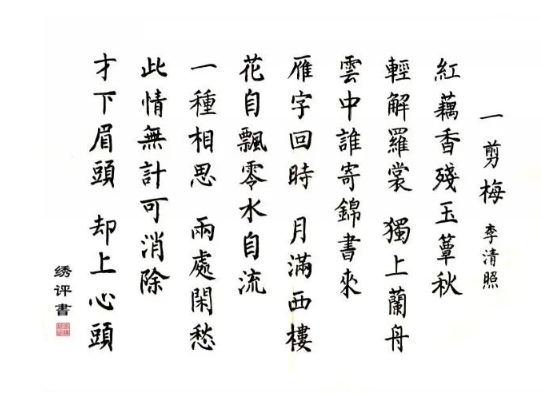 一剪梅 李清照
紅藕香殘玉蕈秋
輕解羅裳 獨上蘭舟
雲中誰寄錦書來
雁字回時 月滿西樓
花自飄零水自流
一種相思 兩處閑愁
此情無計可消除
才下眉頭 却上心頭
绣评書